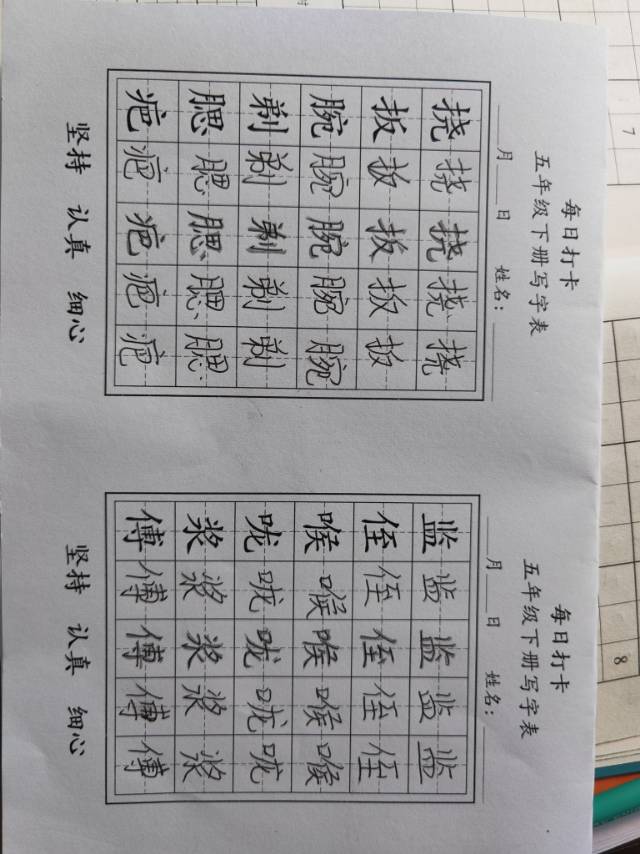 每日打卡
五年级下册写字表
月 日 姓名:
挠 挠 挠 挠 挠
扳 扳 扳 扳 扳
腕 腕 腕 腕 腕
剃 剃 剃 剃 剃
腮 腮 腮 腮 腮
疤 疤 疤 疤 疤
坚持 认真 细心
每日打卡
五年级下册写字表
月 日 姓名:
监 监 监 监 监
侄 侄 侄 侄 侄
喉 喉 喉 喉 喉
咙 咙 咙 咙 咙
浆 浆 浆 浆 浆
傅 傅 傅 傅 傅
坚持 认真 细心
7
8